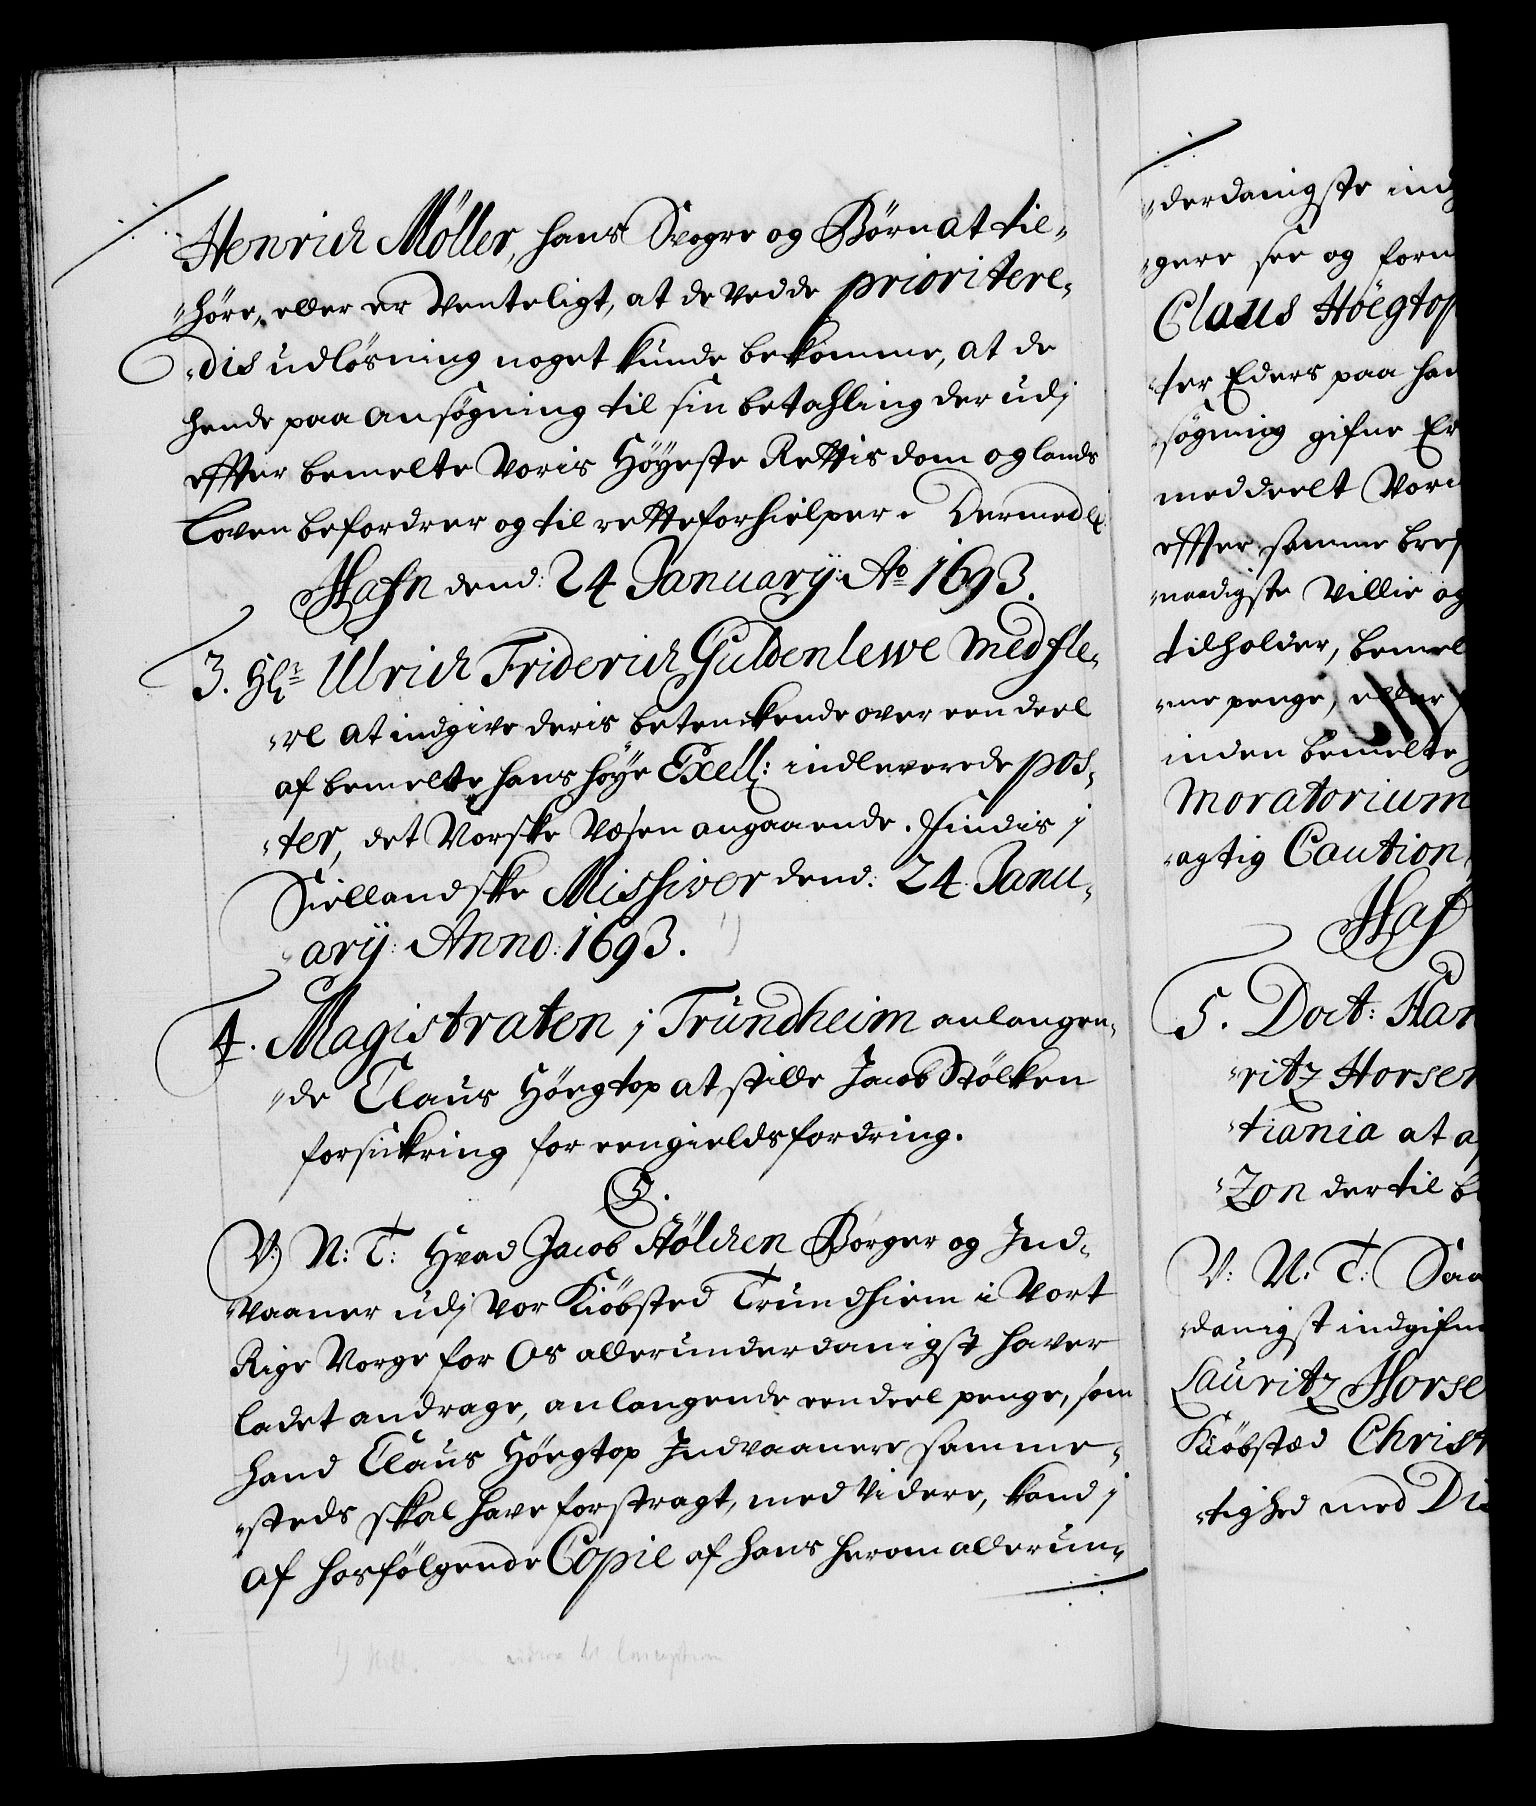 Henrich Möller, hans Svogre og Börn at til-
höre, eller er venteligt, at de vedde prioritere-
dis udlösning noget kunde bekomme, at de
hende paa ansögning til sin betahling der udj
effter bemelte Voris Höyeste Rettis dom og lands
Loven befordrer og til rette forhielper. Dermed
Hafn dend: 24 January: Ao 1693.
3. Hr. Ulrich Friderich Guldenlewe med fle-
re at indgive deris betenckende over een deel
af bemelte hans höye Exell: indleverede pos-
ter, det Norske Væsen angaaende. findis j
Siellandske Missiver dend: 24. Janu-
ary: Anno: 1693. 1)
4. Magistraten j Trundheim anlangen-
de Claus Höegtop at stille Jacob Stölken
forsickring for een gields fordring.
C5.
V: N: T: Hvad Jacob Stölcken Borger og Ind-
vaaner udj Vor Kiöbsted Trundhiem i Vort
Rige Norge for Os allerunderdanigst haver
ladet andrage, anlangende een deel penge, som
hand Claus Höegtop Indvaanere samme-
steds skal have forstragt, med videre, kand j
af hosfölgende Copie af hans herom allerun-
derdanigste ind
gere see og forn
Claus Höegtop
ter Eders paa han
sögning gifne Er
meddeelt Vor
effter samme bref
naadigste Villie og
tilholder, bemel
me penge, eller
inden bemelte
Moratorium
agtig Caution
Haf
5. Doct: Han
ritz Horsen
tiania at a
Zon der til b
V: N: T: Saa
danigst indgifn
Lauritz Horse
Kiöbstæd Christ
tighed med Di